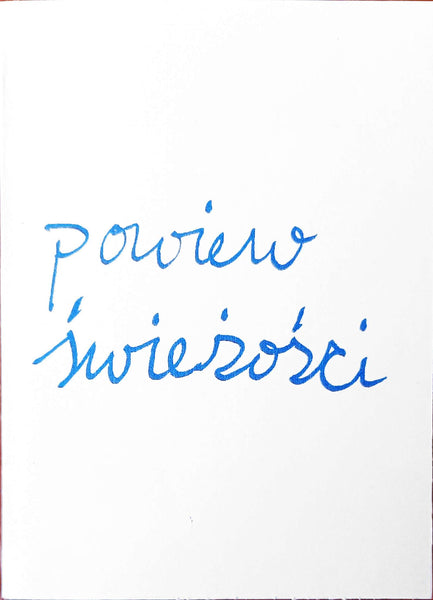 powiew
świeżości